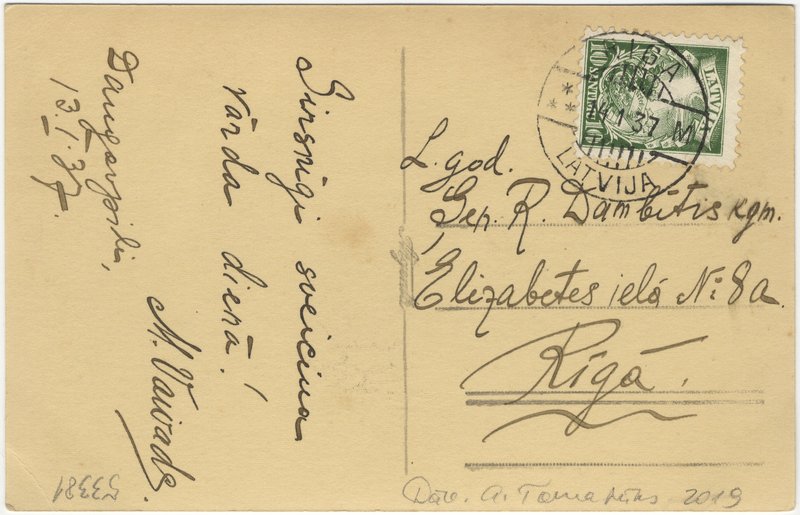 Daugavpilī,
13.I.37.
Sirsnīgi sveicina
vārda dienā!
M. Vaivads.
53381
LATVIJA
10 SANTIMU 10
RIGA
1 37 M
LATVIJA
L. god.
Gen. R. Dambītis kgm.
Elizabetes ielā № 8a
Rīgā.
Dāv. A. 2019